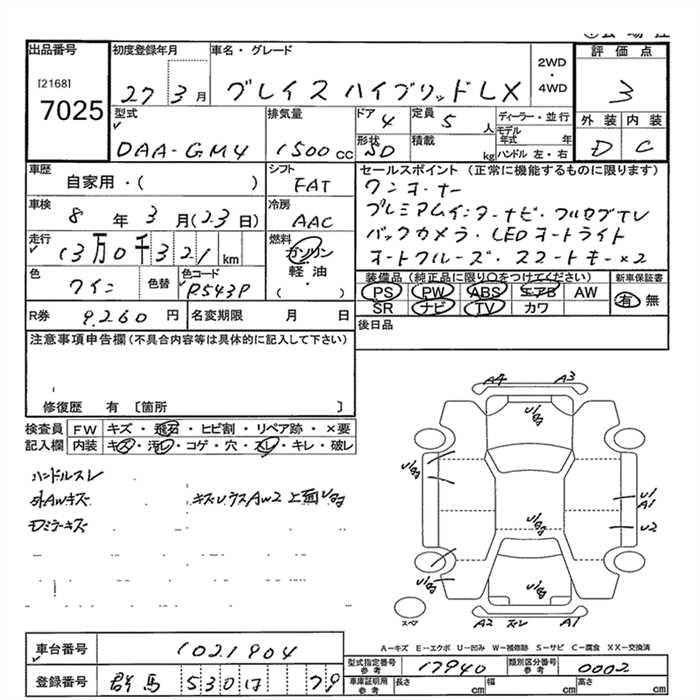 出品番号 初度登録年月 車名・グレード 評価点
[2168]
7025
27 3月 グレイス ハイブリッドLX 2WD・4WD 3
型式 排気量 ドア 4 定員 5人 ディーラー・並行 外装 内装
モデル年式 年
DAA-GM4 1500cc 形状 SD 積載 kg ハンドル 左・右 D C
車歴 シフト セールスポイント (正常に機能するものに限ります)
自家用・( ) FAT ワンオーナー
車検 8年3月(23日) 冷房 AAC プレミアムインターナビ・フルセグTV
走行 13万0千321km 燃料 ガソリン バックカメラ・LEDオートライト
軽・油 オートクルーズ・スマートキー×2
( )
色 ワイン 色替 色コード R543P 装備品(純正品に限り○をつけてください) 新車保証書
PS PW ABS エアB AW 有 無
SR ナビ TV カワ
R券 9.260円 名変期限 月 日 後日品
注意事項申告欄(不具合内容等は具体的に記入して下さい)
修復歴 有 〔箇所 〕
検査員 FW キズ・飛石・ヒビ割・リペア跡・×要
記入欄 内装 キズ・汚レ・コゲ・穴・スレ・キレ・破レ
ハンドルスレ
外AWキズ
Dミラーキズ
A4 A3
U1
A1
U2
A2 スレ A1
スペア
A-キズ E-エクボ U-凹み W-補修跡 S-サビ C-腐食 XX-交換済
車台番号 1021904
型式指定番号 参考 17940 類別区分番号 参考 0002
登録番号 群馬 530 は 79
車庫証明用 参考 長さ cm 幅 cm 高さ cm